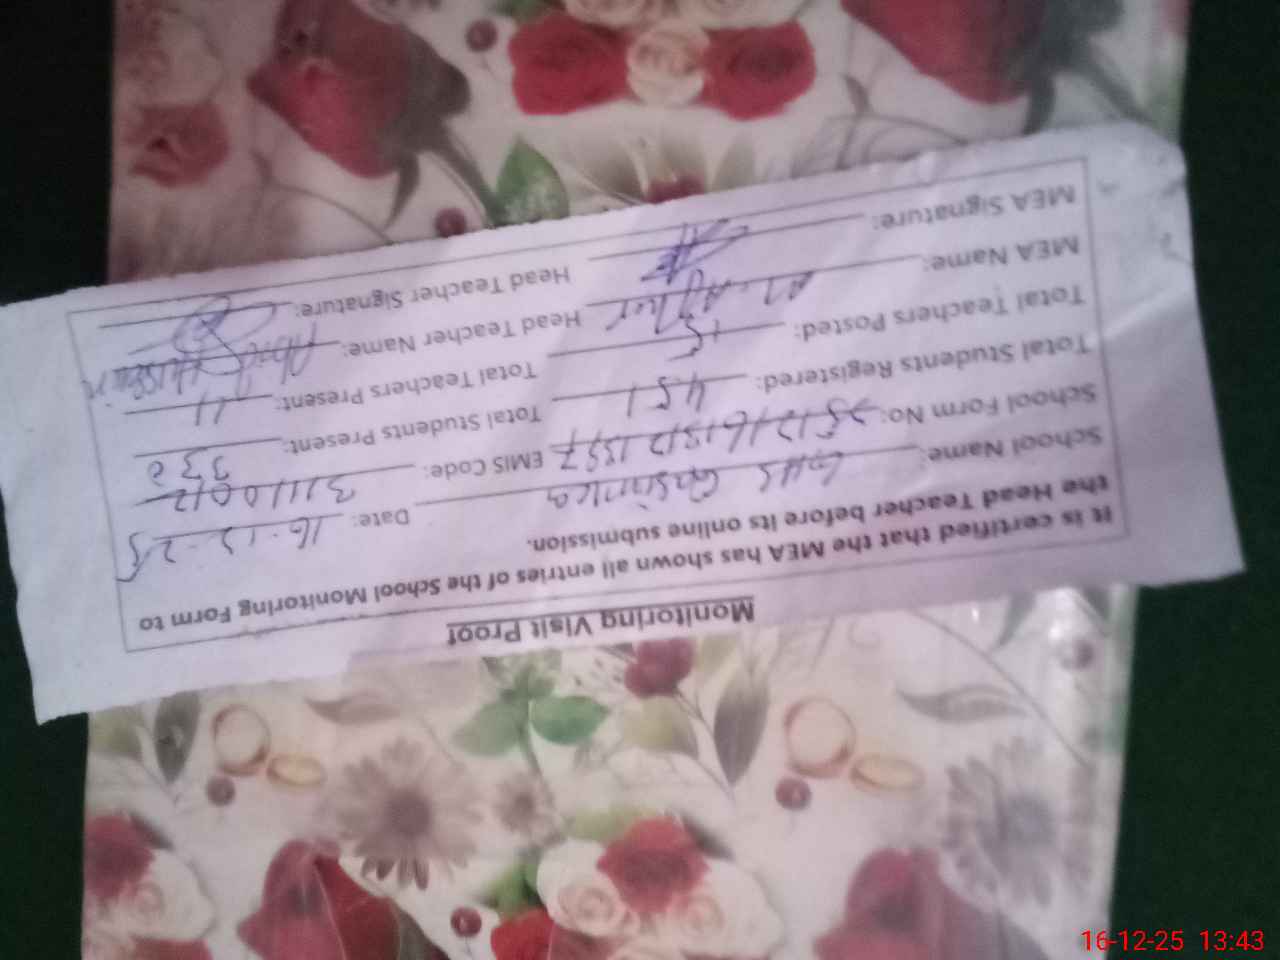 Monitoring Visit Proof
It is certified that the MEA has shown all entries of the School Monitoring Form to
the Head Teacher before its online submission.
School Name: GHS Date: 16-12-25
School Form No: EMIS Code: 31110012
Total Students Registered: 451 Total Students Present: 330
Total Teachers Posted: 15 Total Teachers Present: 11
MEA Name: Head Teacher Name: Hussain
MEA Signature: Head Teacher Signature:
16-12-25 13:43